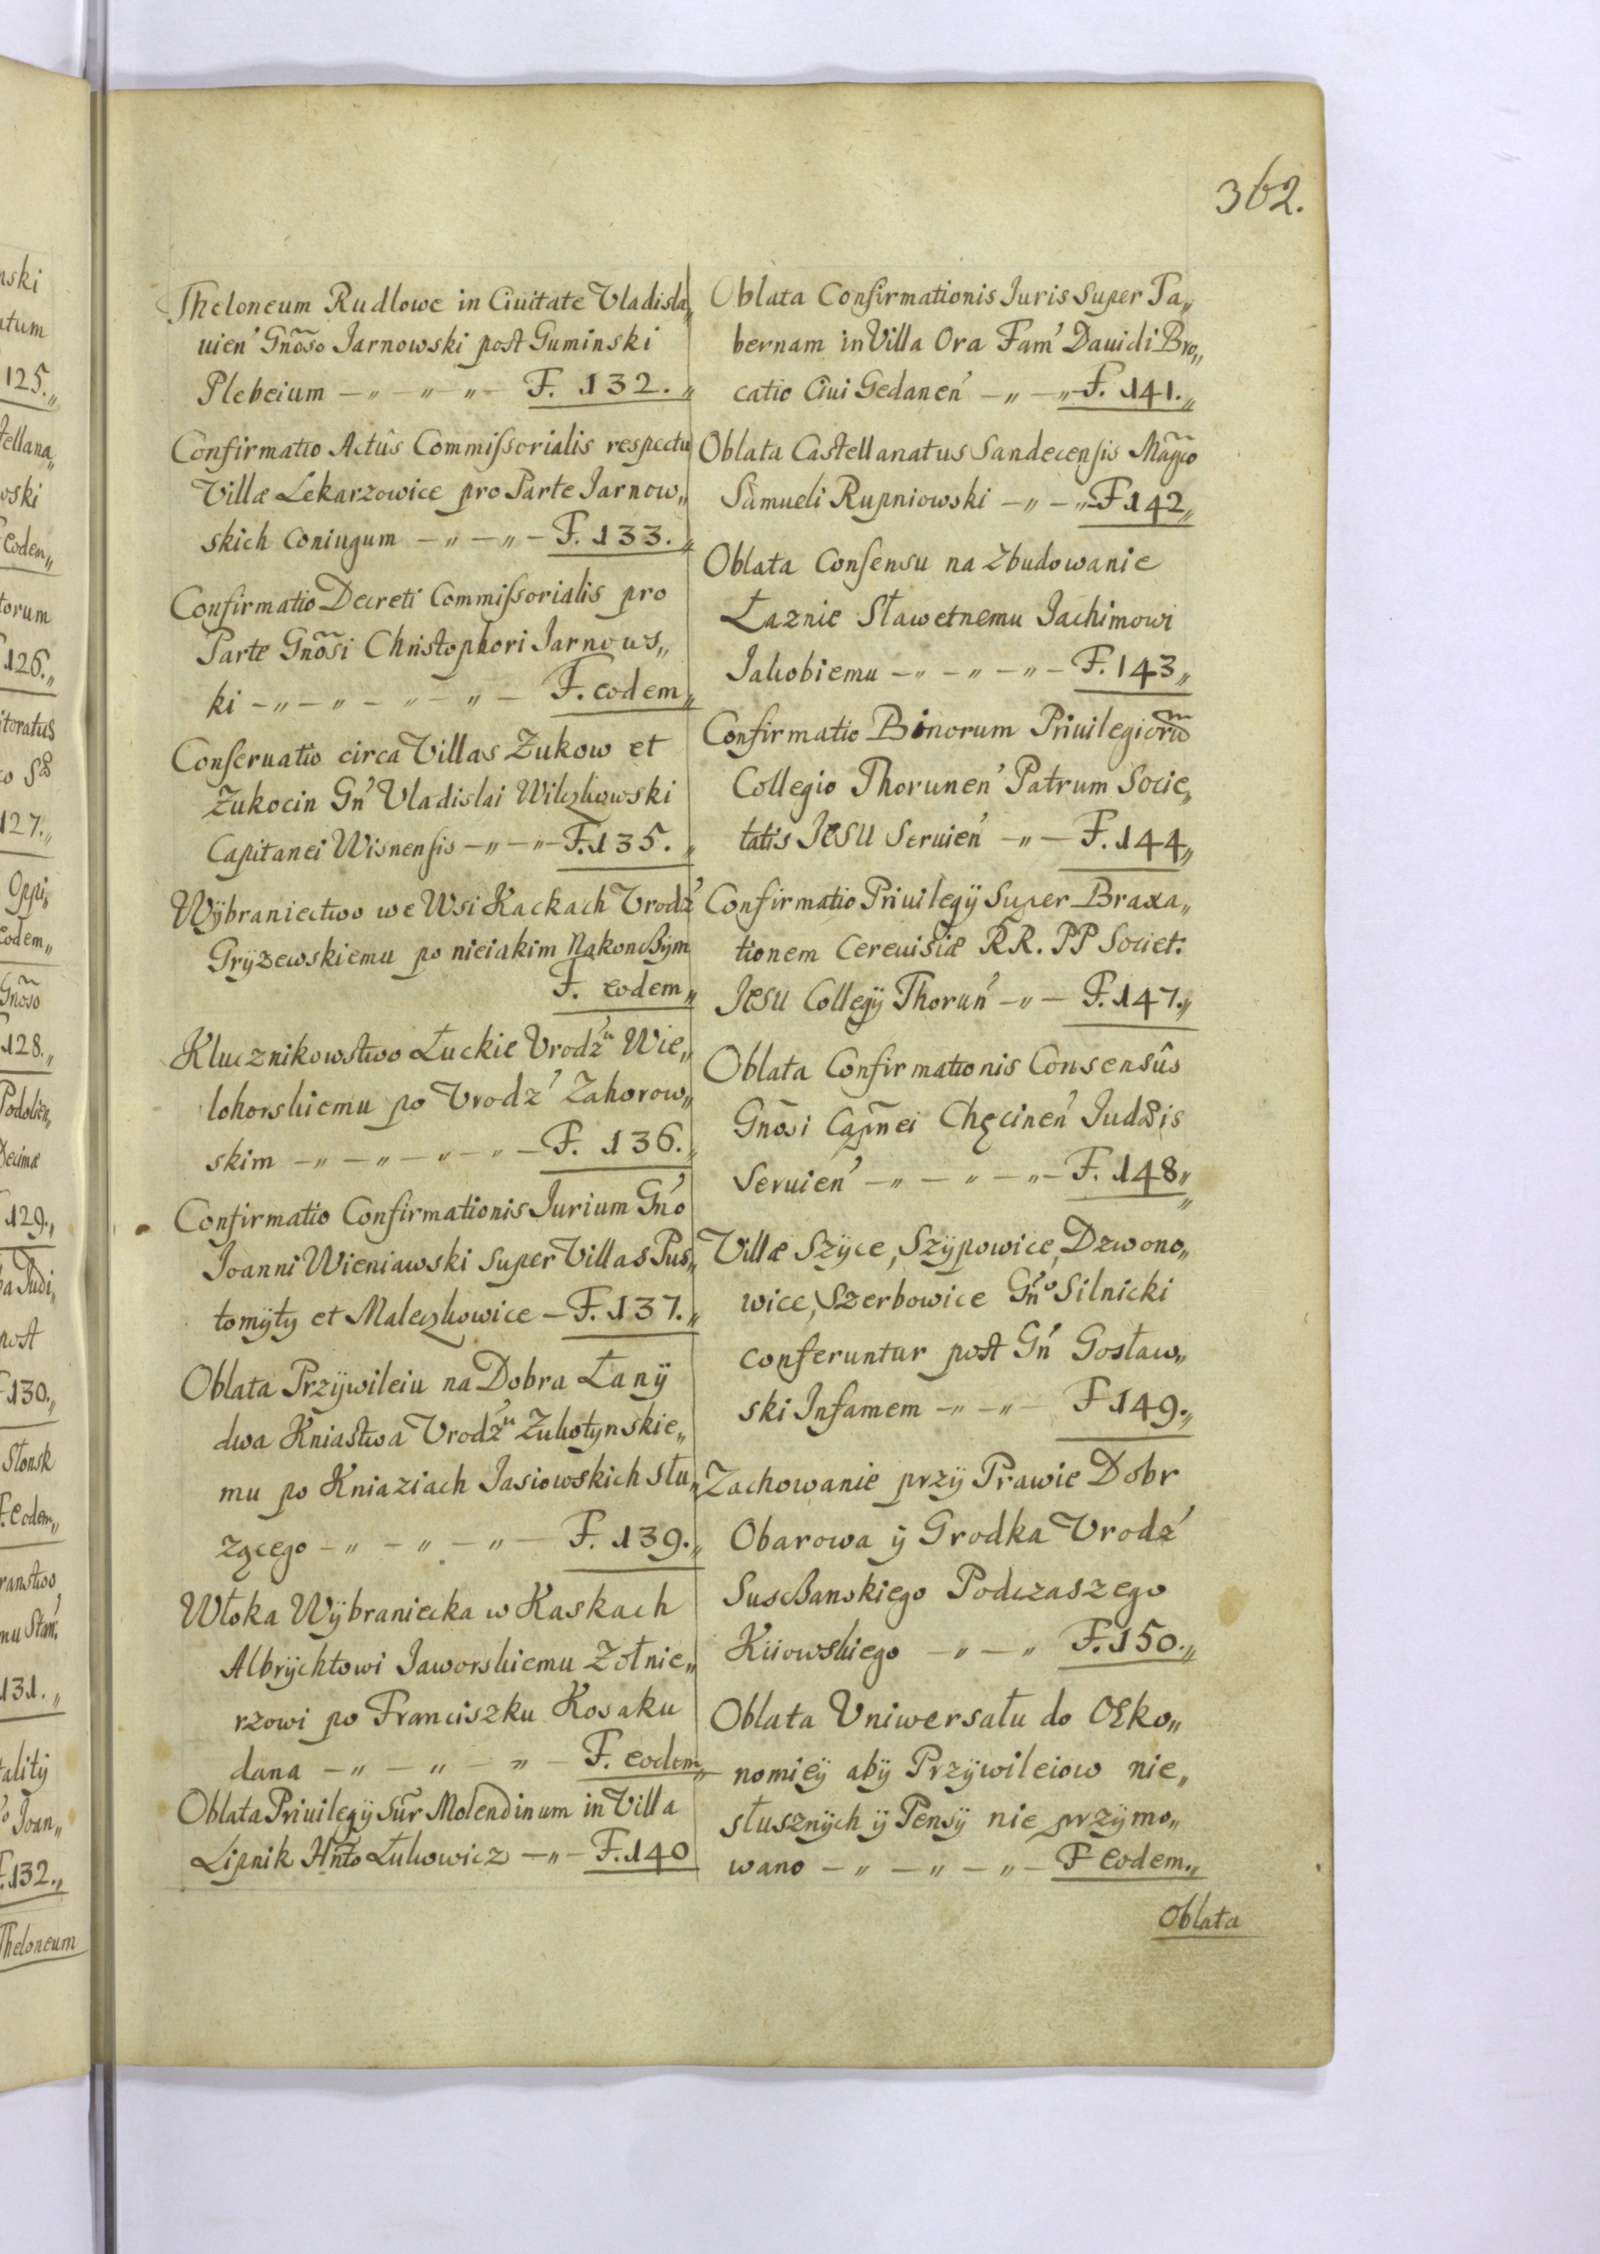 362.
Theloneum Rudlowe in Ciuitate Vladisla„
uien' Gnõso Jarnowski post Guminski
Plebeium —„—„—„— F. 132.„
Confirmatio Actûs Commissorialis respectu
Villæ Lekarzowice pro Parte Jarnow„
skich Coniugum —„—„— F. 133.„
Confirmatio Decreti Commissorialis pro
Parte Gnõsi Christophori Jarnows„
ki —„—„—„—„— F. eodem„
Conseruatio circa Villas Zukow et
Zukocin Gn' Vladislai Wilczkowski
Capitanei Wisnensis —„—„— F. 135.„
Wÿbraniectwo we Wsi Kackach Vrodz'
Grÿzewskiemu po nieiakim Nakonczÿm
F. eodem„
Klucznikowstwo Łuckie Vrodz'u Wie„
lohorskiemu po Vrodz' Zahorow„
skim —„—„—„—„— F. 136.„
Confirmatio Confirmationis Jurium Gn'o
Joanni Wieniawski super Villas Pus„
tomÿty et Maleczkowice — F. 137.„
Oblata Przÿwileiu na Dobra Łanÿ
dwa Kniastwa Vrodz'u Zukotynskie„
mu po Kniaziach Jasiowskich słu„
zącego —„—„—„— F. 139.„
Włoka Wÿbraniecka w Kaskach
Albrÿchtowi Jaworskiemu Zołnie„
rzowi po Franciszku Kosaku
dana —„—„—„— F. eodem„
Oblata Priuilegÿ Sur̃ Molendinum in Villa
Lipnik Hñto Łukowicz —„— F. 140
Oblata Confirmationis Juris Super Ta„
bernam in Villa Ora Fam' Dauidi Bro„
catio Ciui Gedanen' —„—„— F. 141.„
Oblata Castellanatus Sandecensis Mag̃co
Samueli Rupniowski —„—„— F 142„
Oblata Consensu na Zbudowanie
Łaznie Sławetnemu Jachimowi
Jakobiemu —„—„—„— F. 143„
Confirmatio Binorum Priuilegiorũ
Collegio Thorunen' Patrum Socie„
tatis JESU Seruien' —„— F. 144„
Confirmatio Priuilegÿ Super Braxa„
tionem Cereuisiæ RR. PP Societ:
JESU Collegÿ Thorun' —„— F. 147.„
Oblata Confirmationis Consensûs
Gnõsi Cap̃nei Chęcinen' Judæis
Seruien' —„—„—„— F. 148„
Villæ Szÿce, Szÿpowice, Dzwono„
wice, Szerbowice Gn'o Silnicki
conferuntur post Gn' Gosław„
ski Infamem —„—„— F 149.„
Zachowanie przÿ Prawie Dobr
Obarowa ÿ Grodka Vrodz'
Susczanskiego Podczaszego
Kiiowskiego —„—„ F. 150.„
Oblata Vniwersału do Œko„
nomiÿ abÿ Przÿwileiow nie„
słusznÿch ÿ Pensÿ nie przÿmo„
wano —„—„—„— F eodem„
Oblata